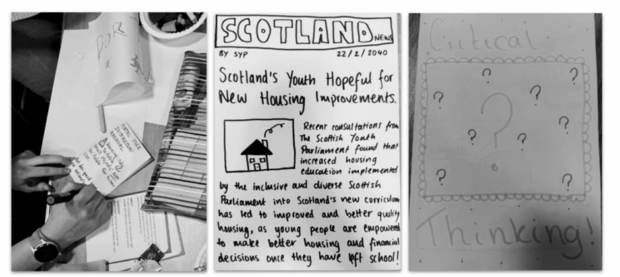 SCOTLAND NEWS
BY SYP 22/2/2040
Scotland's Youth Hopeful for
New Housing Improvements.
Recent consultations from
The Scottish Youth
Parliament found that
increased housing
education implemented
by the inclusive and diverse Scottish
Parliament into Scotland's new curriculum
has led to improved and better quality
housing, as young people are empowered
to make better housing and financial
decisions once they have left school!
Critical
? ? ? ? ? ? ? ? ?
Thinking!